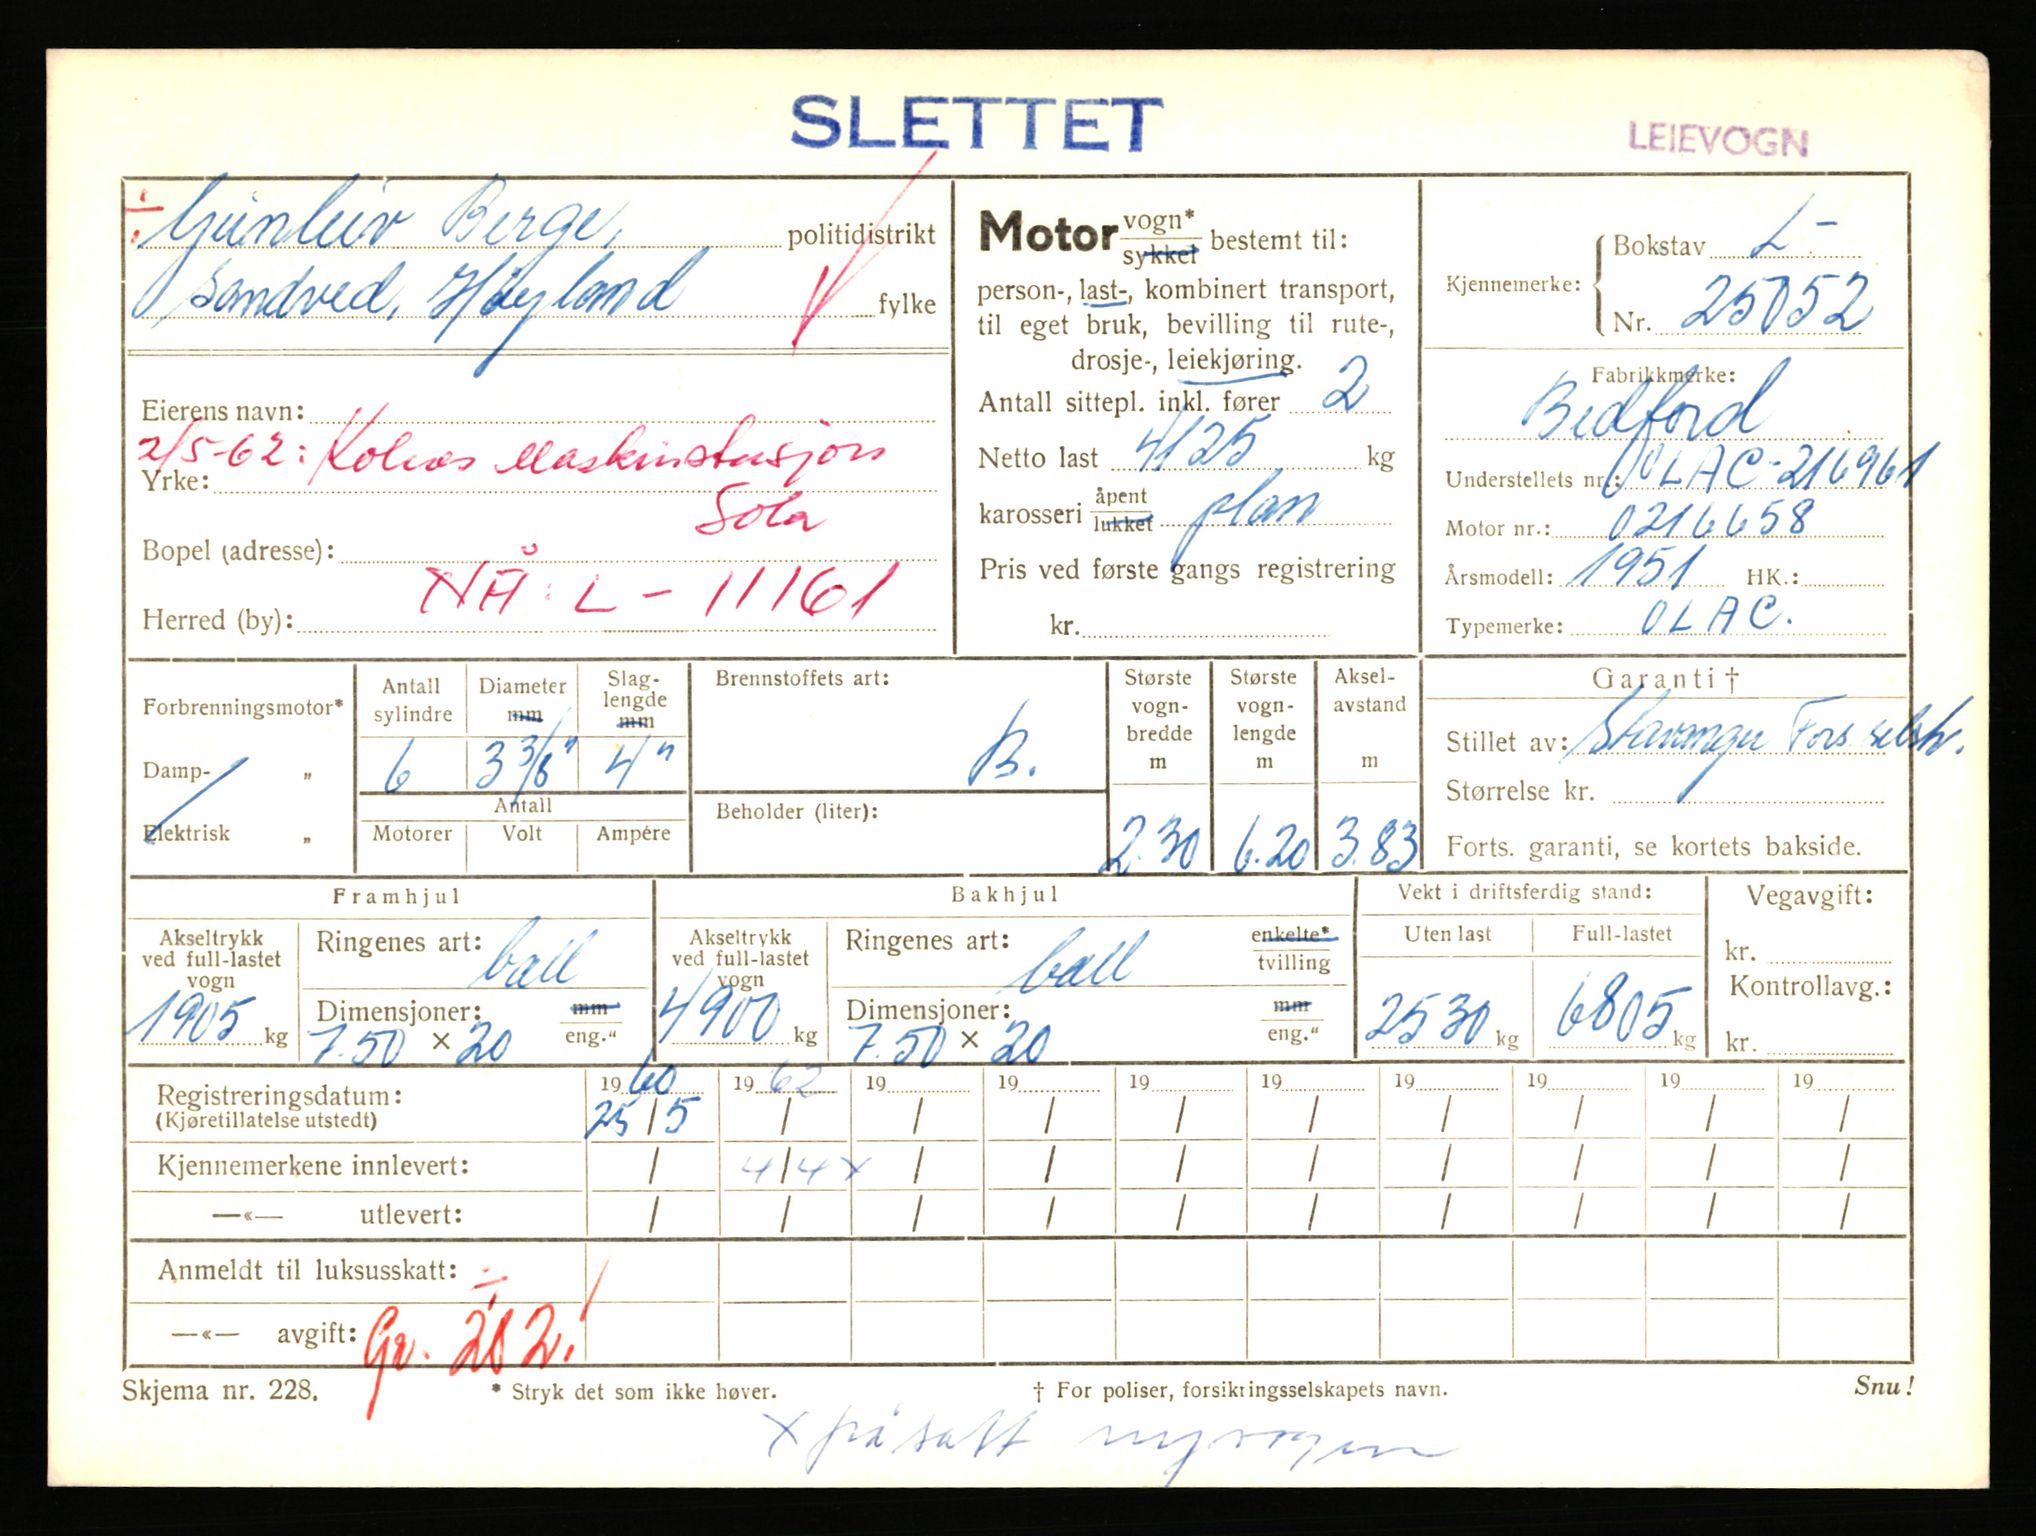 SLETTET
LEIEVOGN
Gunleiv Berge, politidistrikt
Sandved, Høyland fylke
Eierens navn:
2/5-62: Kolnes Maskinstasjon
Yrke:
Sola
Bopel (adresse):
NÅ: L - 11161
Herred (by):
Motor vogn* sykkel bestemt til:
person-, last-, kombinert transport,
til eget bruk, bevilling til rute-,
drosje-, leiekjøring.
Antall sittepl. inkl. fører 2
Netto last 4125 kg
karosseri åpent lukket plan
Pris ved første gangs registrering
kr.
Kjennemerke: Bokstav L-
Nr. 25052
Fabrikkmerke:
Bedford
Understellets nr.: OLAC-216961
Motor nr.: 0216658
Årsmodell: 1951 HK.:
Typemerke: OLAC.
Forbrenningsmotor*
Damp- „
Elektrisk „
Antall sylindre 6
Diameter mm 3 3/8"
Slag-lengde mm 4"
Antall
Motorer Volt Ampére
Brennstoffets art:
B.
Beholder (liter):
Største vogn-bredde m 2.30
Største vogn-lengde m 6.20
Aksel-avstand m 3.83
Garanti †
Stillet av: Stavanger Fors.selsk.
Størrelse kr.
Forts. garanti, se kortets bakside.
Framhjul
Akseltrykk ved full-lastet vogn 1905 kg
Ringenes art: ball
Dimensjoner: mm eng."
7.50 × 20
Bakhjul
Akseltrykk ved full-lastet vogn 4900 kg
Ringenes art: ball enkelte* tvilling
Dimensjoner: mm eng."
7.50 × 20
Vekt i driftsferdig stand:
Uten last Full-lastet
2530 kg 6805 kg
Vegavgift:
kr.
Kontrollavg.:
kr.
Registreringsdatum: 1960 1962 19 19 19 19 19 19 19 19
(Kjøretillatelse utstedt) 25/5 / / / / / / / / /
Kjennemerkene innlevert: / 4/4 x / / / / / / / /
—«— utlevert: / / / / / / / / / /
Anmeldt til luksusskatt:
—«— avgift: Gr. 282.!
Skjema nr. 228.
* Stryk det som ikke høver.
† For poliser, forsikringsselskapets navn.
Snu!
x påsatt ny vogn